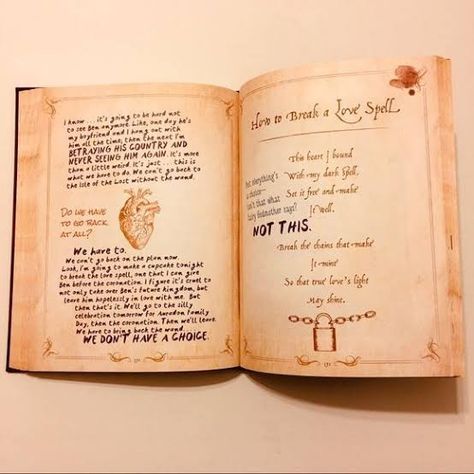 I know . . . it's going to be hard not
to see Ben anymore. Like, one day he's
my boyfriend and I hang out with
him all the time, then the next I'm
BETRAYING HIS COUNTRY AND
NEVER SEEING HIM AGAIN. It's more
than a little weird. It's just . . . this is
what we have to do. We can't go back to
the Isle of the Lost without the wand.
DO WE HAVE
TO GO BACK
AT ALL?
We have to.
We can't go back on the plan now.
Look, I'm going to make a cupcake tonight
to break the love spell, one that I can give
Ben before the coronation. I figure it's cruel to
not only take over Ben's future kingdom, but
leave him hopelessly in love with me. But
then that's it. We'll go to the silly
celebration tomorrow for Auradon Family
Day, then the coronation. Then we'll leave.
We have to bring back the wand.
WE DON'T HAVE A CHOICE.
How to Break a Love Spell
This heart I bound
With my dark spell,
Set it free and make
It well.
But everything's
a choice—
isn't that what
Fairy Godmother says?
NOT THIS.
Break the chains that make
It mine
So that true love's light
May shine.